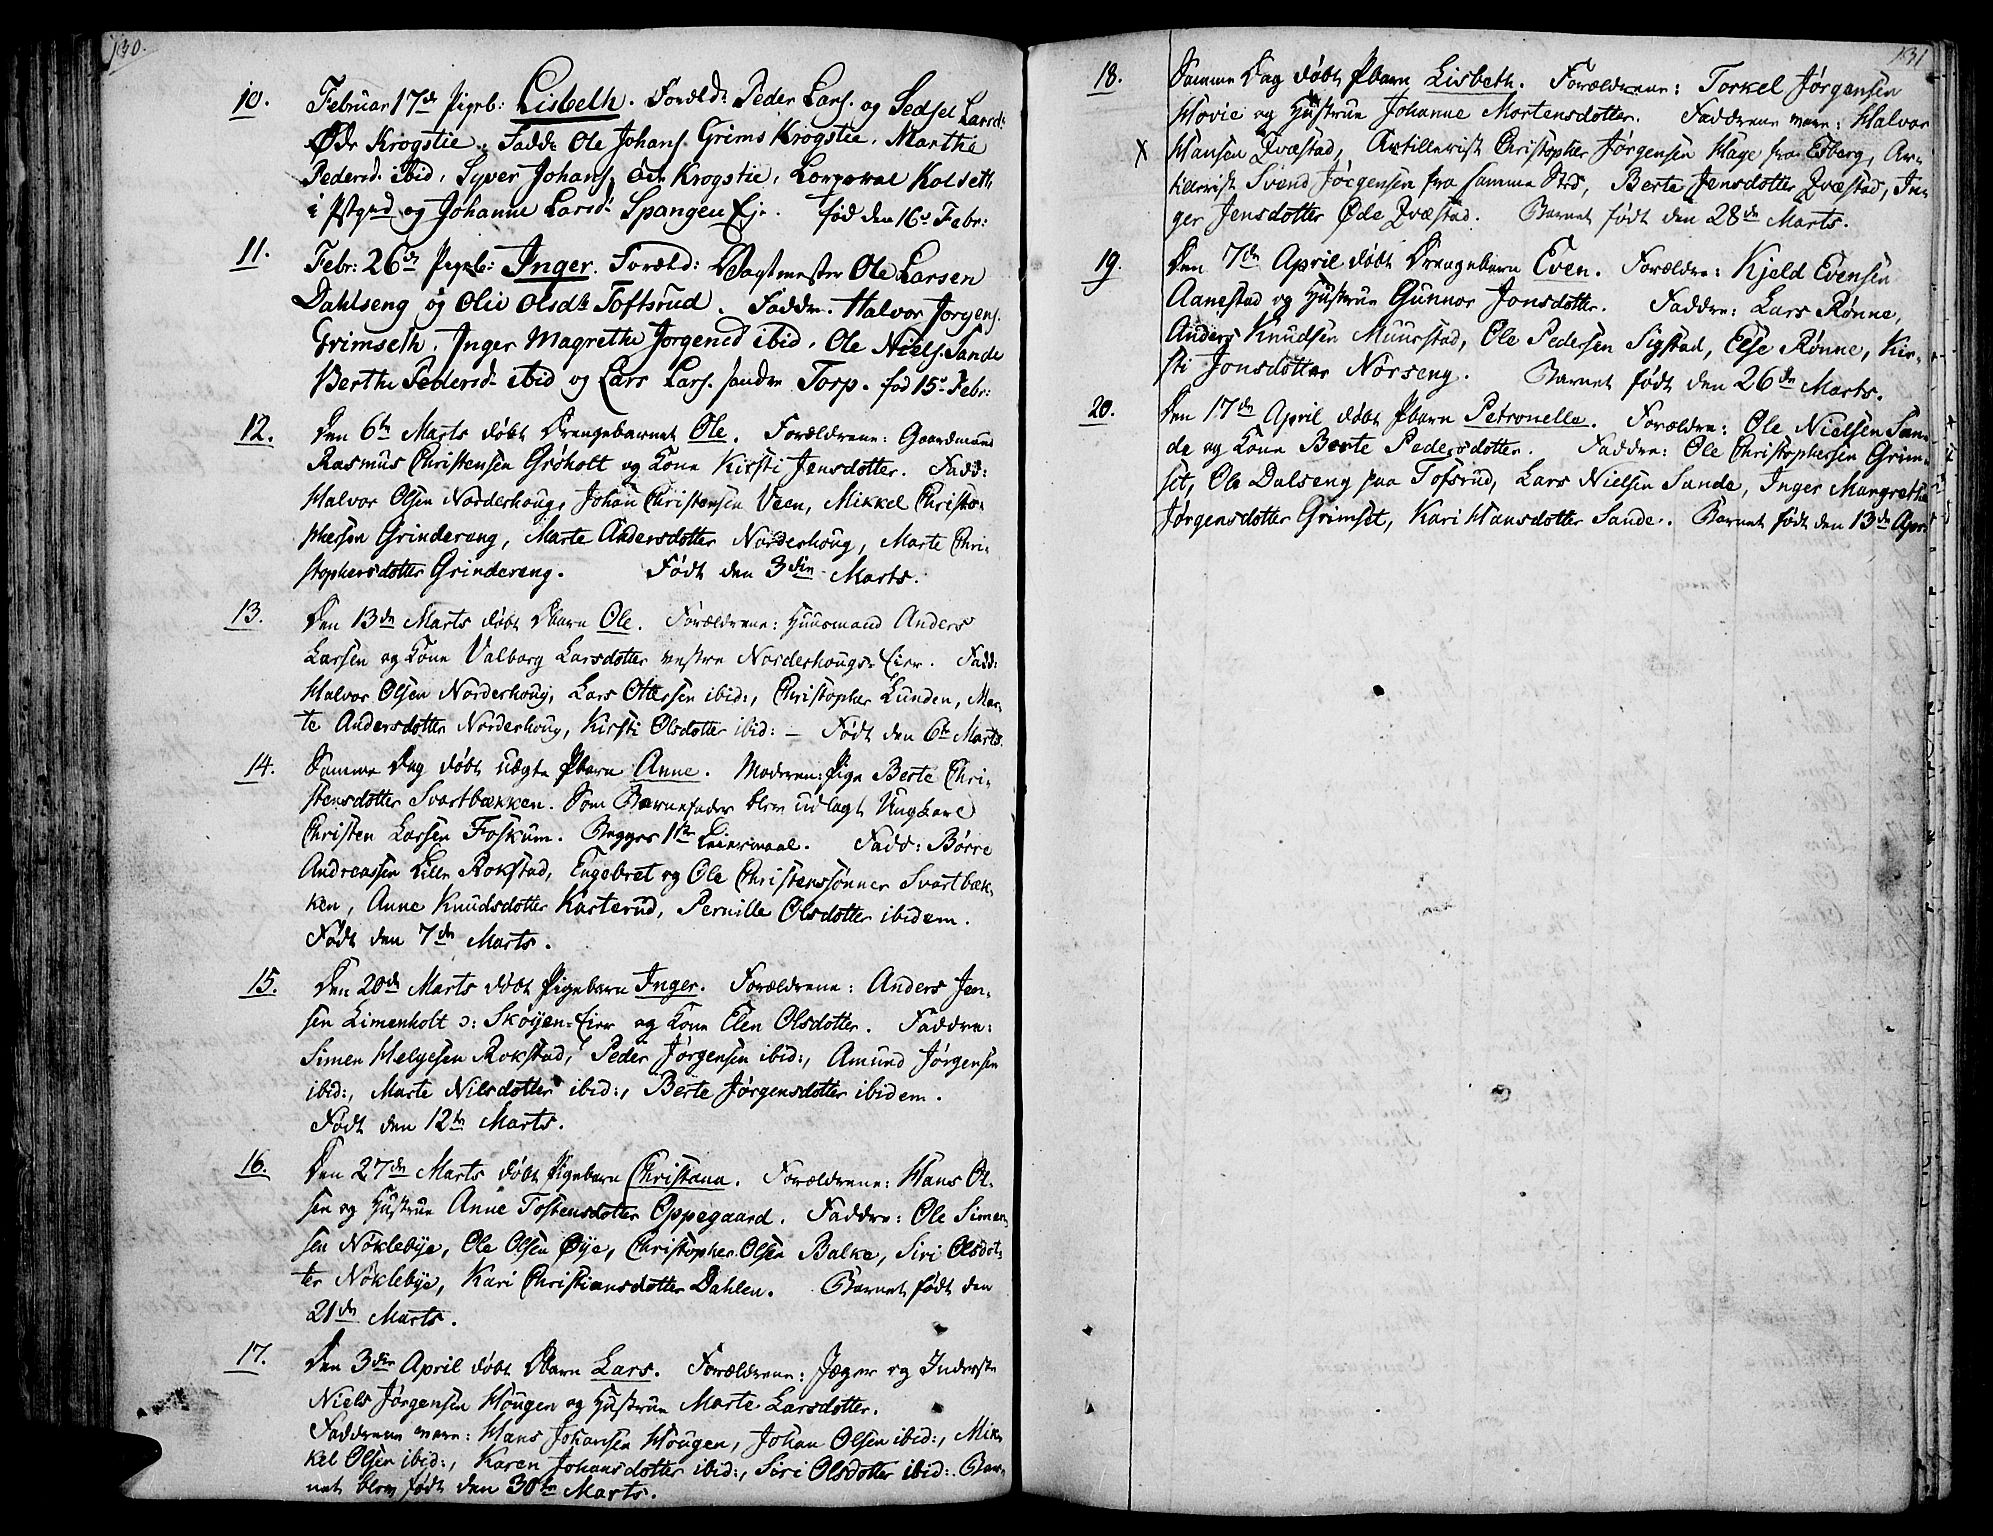 130.
10. Februar 17de Pigeb: Lisbeth. Foreld: Peder Lars. og Sedsel Larsd:
Øde Krogstie. Fadd: Ole Johans. Grims Krogstie, Marthe
Pedersd. ibid, Syver Johans. Øde Krogstie, Corporal Kolseth
i og Johanne Larsd. Spangen Eje. fød den 16de Febr:
11. Febr: 26de Pigeb: Inger. Foreld: Vagtmester Ole Larsen
Dahlseng og Olie Olsdt Toftsrud. Faddr. Halvor Jørgens.
Grimseth, Inger Magrethe Jørgensd ibid, Ole Niels. Sande
Berthe Pedersd. ibid og Lars Lars. søndre Torp. fød 15de Febr:
12. Den 6te Marts døbt Drengebarnet Ole. Forældrene: Gaardmand
Rasmus Christensen Grøholt og Kone Kirsti Jensdotter. Fadd:
Halvor Olsen Norderhoug, Johan Christensen Veen, Mikkel Christo-
phersen Grindereng, Marte Andersdotter Norderhoug, Marte Chri-
stophersdotter Grindereng. Født den 3die Marts.
13. Den 13de Marts døbt Dbarn Ole. Forældrene: Huusmand Anders
Larsen og Kone Valborg Larsdotter vestre Norderhougs-Eier. Fadd:
Halvor Olsen Norderhoug, Lars Ottessen ibid:, Christopher Lunden, Mar-
te Andersdotter Norderhoug, Kirsti Olsdotter ibid: — Født den 6te Marts.
14. Samme Dag døbt uægte Pbarn Anne. Moderen: Pige Berte Chri-
stensdotter Svartbækken. Som Barnefader blev udlagt Ungkarl
Christen Larsen Foskum. Begges 1ste Leiermaal. Fadd: Børre
Andreassen Lille Rokstad, Engebret og Ole Christenssønner Svartbæk-
ken, Anne Knudsdotter Kasterud, Pernille Olsdotter ibidem.
Født den 7de Marts.
15. Den 20de Marts døbt Pigebarn Inger. Forældrene: Anders Jen-
sen Limenholt ɔ: Skøyen-Eier og Kone Elen Olsdotter. Faddre:
Simen Helgesen Rokstad, Peder Jørgensen ibid:, Amund Jørgensen
ibid:, Marte Nilsdotter ibid:, Berte Jørgensdotter ibidem.
Født den 12te Marts.
16. Den 27de Marts døbt Pigebarn Christana. Forældrene: Hans Ol-
sen og Hustrue Anne Tostensdotter Oppegaard. Faddre: Ole Simen-
sen Nøklebye, Ole Olsen Øye, Christopher Olsen Balke, Siri Olsdot-
ter Nøklebye, Kari Christiansdotter Dahlen. Barnet født den
21de Marts.
17. Den 3die April døbt Dbarn Lars. Forældrene: Jæger og Inderste
Niels Jørgensen Hougen og Hustrue Marte Larsdotter.
Faddrene vare: Hans Johansen Hougen, Johan Olsen ibid:, Mik-
kel Olsen ibid:, Karen Johansdotter ibid:, Siri Olsdotter ibid: Bar-
net blev født den 30te Marts.
131
18. Samme Dag døbt Pbarn Lisbeth. Forældrene: Torkel Jørgensen
Hovie og Hustrue Johanne Mortensdotter. Faddrene vare: Halvor
X Hansen Qvæstad, Artillerist Christopher Jørgensen Hage fra Esberg, Ar-
tillerist Svend Jørgensen fra samme Sted, Berte Jensdotter Qvæstad, In-
ger Jensdotter Øde Qvæstad. Barnet født den 28de Marts.
19. Den 7de April døbt Drengebarn Even. Forældre: Kjeld Evensen
Aanestad og Hustrue Gunnor Jonsdotter. Faddre: Lars Rønne,
Anders Knudsen Muurstad, Ole Pedersen Sigstad, Else Rønne, Kir-
sti Jonsdotter Norseng. Barnet født den 26de Marts.
20. Den 17de April døbt Pbarn Petronelle. Forældre: Ole Nielsen San-
de og Kone Berte Pedersdotter. Faddre: Ole Christophersen Grim-
set, Ole Dalseng paa Tofsrud, Lars Nielsen Sande, Inger Margrethe
Jørgensdotter Grimset, Kari Hansdotter Sande. Barnet født den 13de Apr.